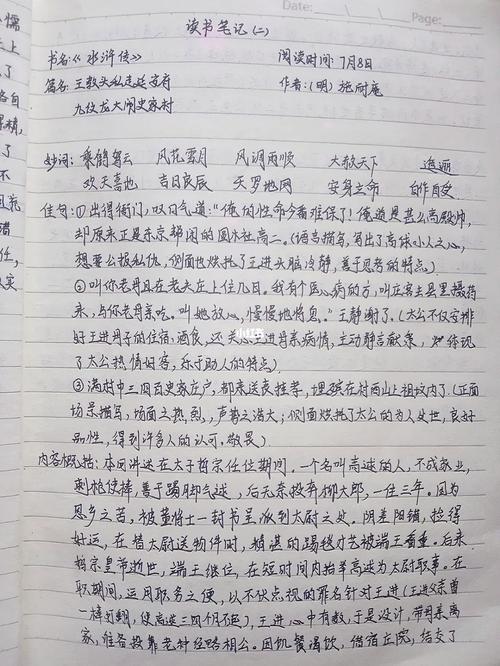 Date: Page:
读书笔记(二)
书名:《水浒传》 阅读时间:7月8日
篇名:王教头私走延安府 作者:(明)施耐庵
九纹龙大闹史家村
妙词:乘鹤驾云 风花雪月 风调雨顺 大赦天下 逍遥
欢天喜地 吉日良辰 天罗地网 安身立命 自作自受
佳句:①出得衙门,叹口气道:“俺的性命今番难保了!俺道是甚么高殿帅,
却原来正是东京帮闲的圆社高二。(语言描写,写出了高俅小人之心,
想要公报私仇,侧面也烘托了王进头脑冷静,善于思考的特点)
②叫你老母且在老夫庄上住几日,我有个医心病的方,叫庄客去县里撮药
来,与你老母亲吃。叫她放心,慢慢地将息。”王静谢了。(太公不仅安排
好王进母子的住宿、酒食,还关心王进母亲病情,主动献
了太公热情好客,乐于助人的特点)
小红书
③满村中三四百史家庄户,都来送丧挂孝,埋殡在村西山上祖坟内了(正面
场景描写,场面之热烈,声势之浩大;侧面烘托了太公的为人处世,良好
品性,得到许多人的认可、敬畏)
内容概括:本回讲述在太子哲宗任位期间,一个名叫高俅的人,不成家业,
刺枪使棒,善于踢脚气毬,后无奈投奔柳大郎,一住三年。因
思乡之苦,被董将士一封书呈派到太尉之处。阴差阳错,捡得
好运,在替太尉送物件时,精湛的踢毬才艺被端王看重。后来
哲宗皇帝逝世,端王继位,在短时间内抬举高俅为太尉职事。在
职期间,运用职务之便,以不伏点视的罪名针对王进(王进父亲曾
一棒打翻,使高俅三四个月不起),王进心中有数,于是设计,带母亲离
家,准备投靠老种经略相公。因饥餐渴饮,借宿庄院,结交了